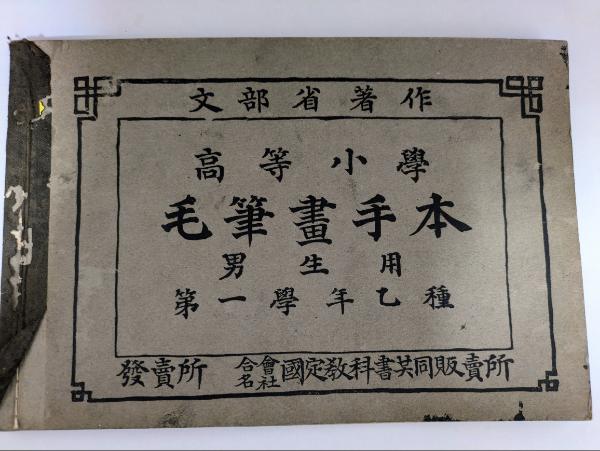 文部省著作
高等小學
毛筆畫手本
男生用
第一學年乙種
發賣所 合名會社國定教科書共同販賣所